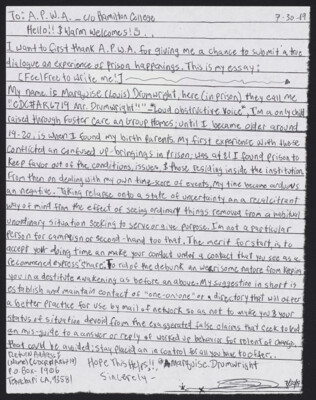 To: A.P.W.A. c/o Hamilton College 7-30-19
Hello!! & Warm Welcomes!!
I want to first thank A.P.W.A. for giving me a chance to submit a true
dialogue an experience of prison happenings. This is my essay:
[Feel free to write me!]
My name is Marqwise (Louis) Drumwright, here (in prison) they call me
"CDC# AK6719 Mr. Drumwright" "Loud obstructive Voice", I'm a only child
raised through Foster Care an Group Homes; until I became older around
19-20. is when I found my birth Parents. My first experience with those
conflicted an confined up-bringings in prison, was at I found prison to
keep favor out of the conditions, issues, & those residing inside the institution.
From then on dealing with my own time-score of events, My time became
an negative. Taking reliance onto a state of uncertainty an a recalcitrant
way of mind from the effect of seeing ordinary things removed from a habitual
situation seeking to serve or give purpose. I'm not a particular
person for campaign or second-hand too that. The merit for start, is to
accept your doing time an make your contact under a contact that you see as a
recommended express chance. To rid of the debunk an wean some nature from keeping
you in a destitute awakening as before an above. My suggestion in short is
establish and maintain contact of "one-on-one" or a directory that will offer
a better practice for use by mail of network so as not to make you & your
status of situation devoid from the exaggerated false claims that seek to but
an mis-guide to a answer or reply of worked up behavior for solent of
that could be avoided; stay placed an in control for all you have to offer.
Return Address:
Hope This Helps!! Marqwise Drumwright
P.O Box-1906 Sincerely -
Tehachapi CA, 93581